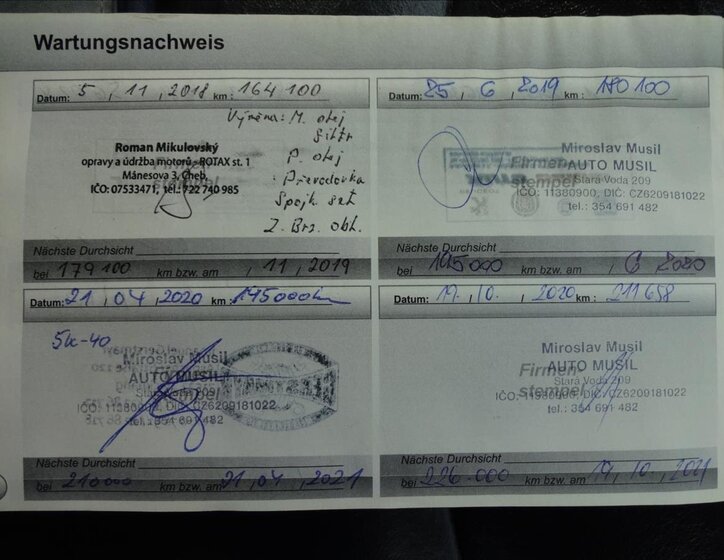 Wartungsnachweis
Datum: 5 , 11 , 2018 km: 164 100
Výměna: M. olej
filtr
P. olej
Převodovka
Spojk. set
Z. Brz. obl.
Roman Mikulovský
opravy a údržba motorů - ROTAX st. 1
Mánesova 3, Cheb,
IČO: 07533471, tel.: 722 740 985
Nächste Durchsicht
bei 179 100 km bzw. am , 11 , 2019
Datum: 25 , 6 , 2019 km: 180 100
Miroslav Musil
Firmen AUTO MUSIL
stempel Stará Voda 209
IČO: 11380900, DIČ: CZ6209181022
tel.: 354 691 482
Nächste Durchsicht
bei 195000 km bzw. am , 6 2020
Datum: 21 , 04 , 2020 km: 195000km
5w-40
Miroslav Musil
AUTO MUSIL
Stará Voda 209
IČO: 11380900, DIČ: CZ6209181022
tel.: 354 691 482
Nächste Durchsicht
bei 210000 km bzw. am 21 , 04 , 2021
Datum: 19. , 10. , 2020 km: 211 658
Miroslav Musil
Firmen AUTO MUSIL
stempel Stará Voda 209
IČO: 11380900, DIČ: CZ6209181022
tel.: 354 691 482
Nächste Durchsicht
bei 226 000 km bzw. am 19 , 10 , 2021